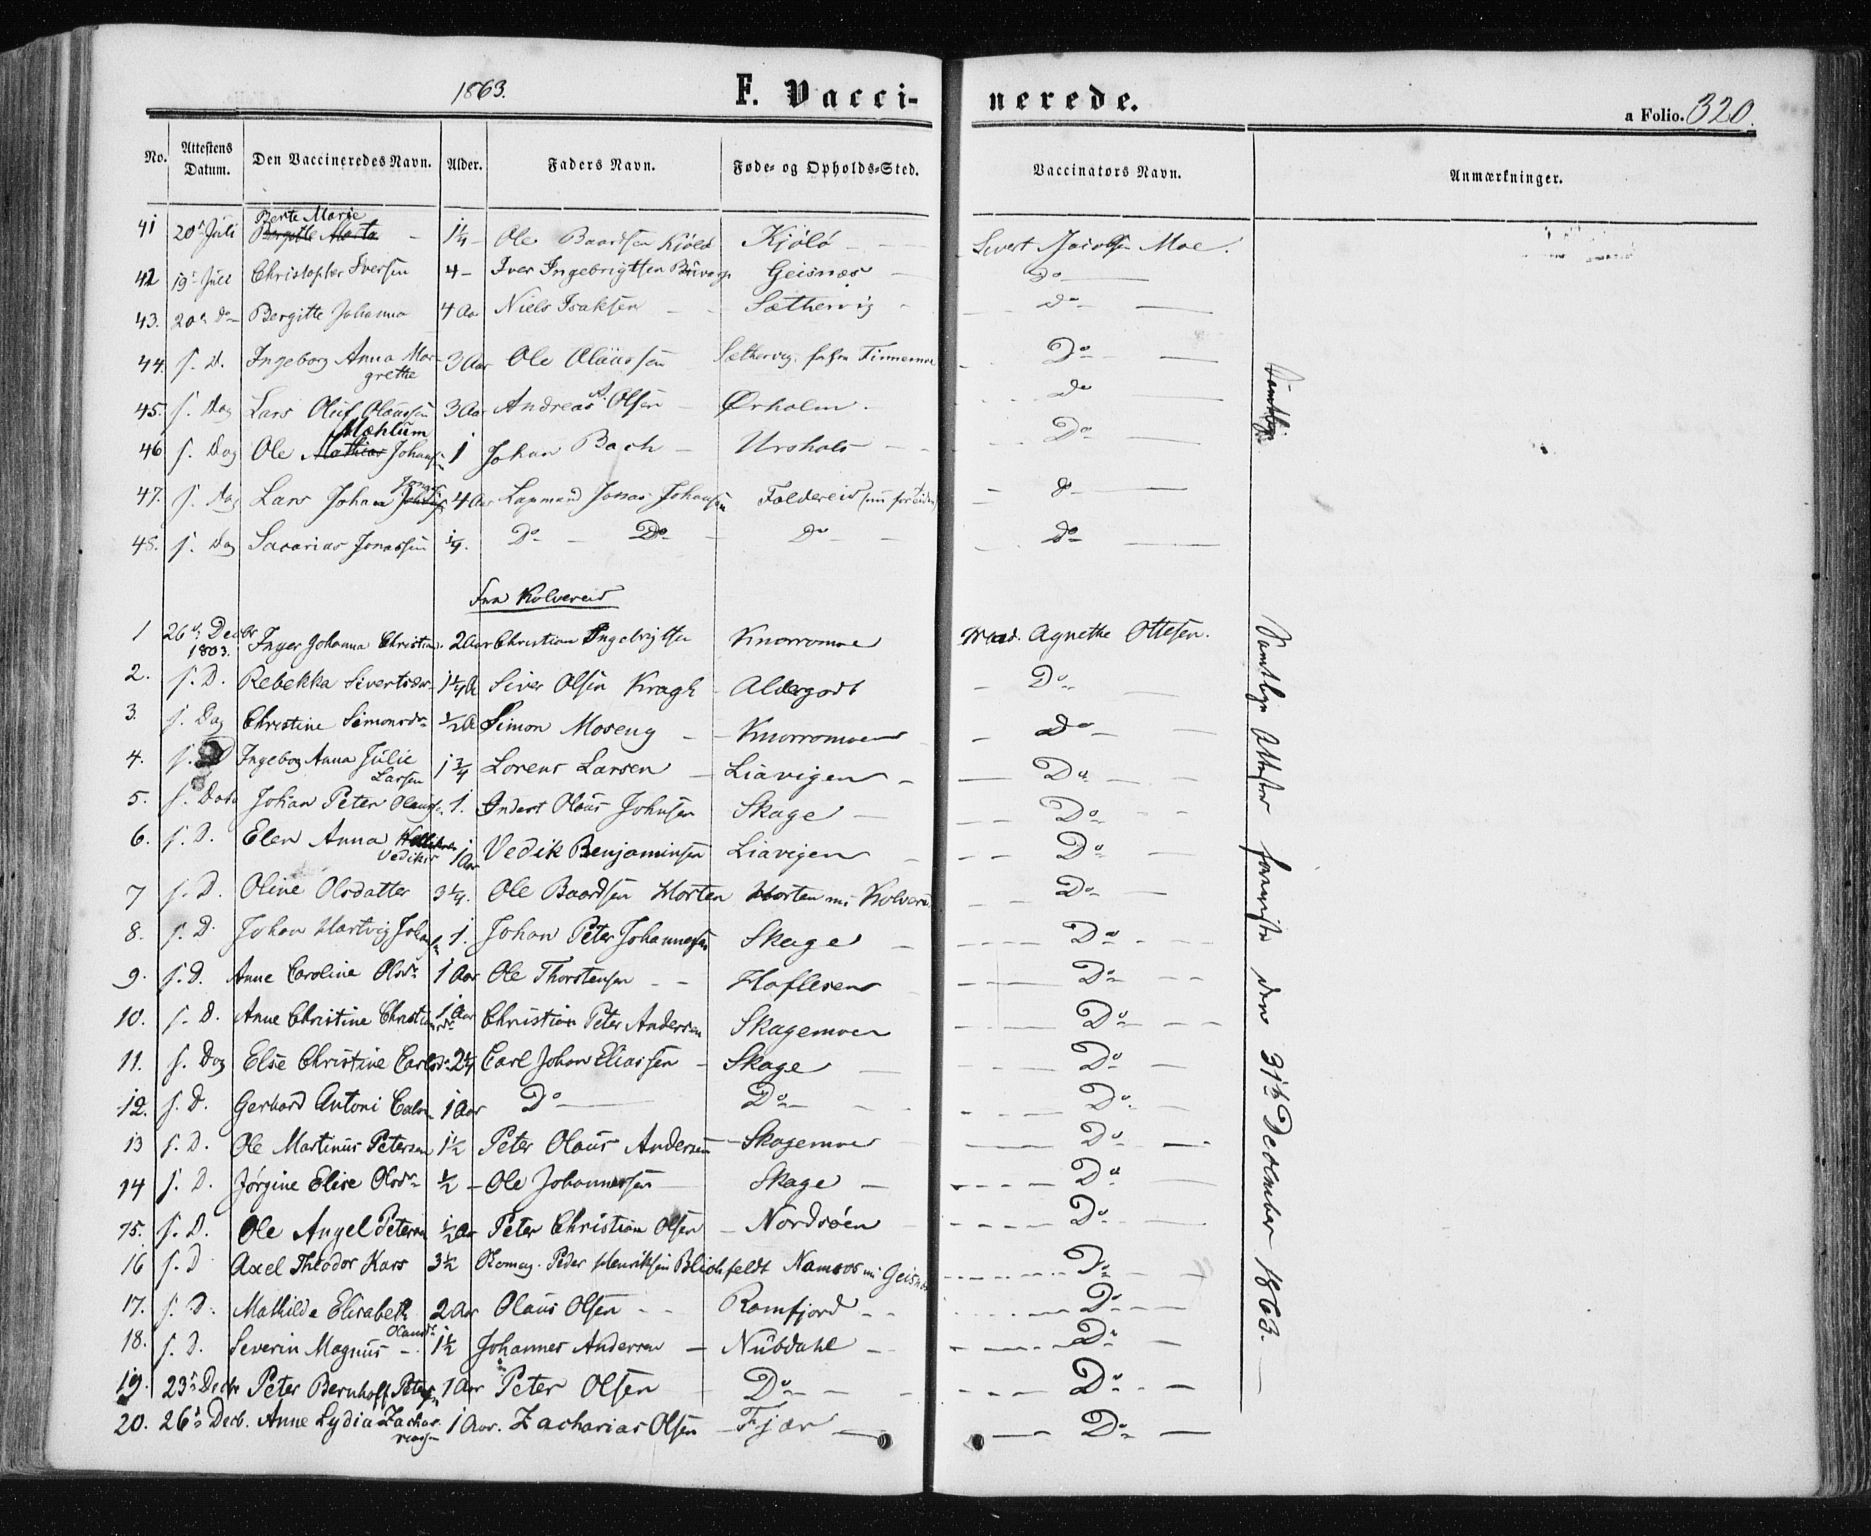 1863.
F. Vacci-
nerede.
a Folio. 320.
No. Attestens Datum. Den Vaccineredes Navn. Alder. Faders Navn. Føde- og Opholds-Sted. Vaccinators Navn. Anmærkninger.
Berte Marie
41 20de Juli Bergitte Marta - 1¼ - Ole Baardsen Kjölö Kjölö - Sivert Jacobsen Moe.
42 19de Juli Christopher Iversen 4 - Iver Ingebrigtsen Geisnæs - Do -
43. 20de Do Bergitte Johanna 4 Aar Niels Isaksen - Sæthervig - Do -
44. s. D. Ingeborg Anna Mar- 3 Aar Ole Olaussen Sæthervig Do -
grethe
45. s. Dag Lars Oluf Olaussen 3 Aar Andreas Olsen - Ørholm. Do -
Mæhlum
46 s. Dag Ole Mathias Johansen 1 Johan Bach - Urshals - Do -
Jonas
47. s. Dag Lars Johan 4 Aar Lapmand Jonas Johansen Foldereid Do -
48. s. Dag Sacarias Jonassen ¼. Do - Do - Do - Do -
Fra Kolvereid
1 26de Decbr 1863. Inger Johanna Christian. 2 Aar Christian Ingebrigtsen Knorromoe Mad. Agnethe Ottesen.
2. s. D. Rebekka Sivertsdr 1¼ A Siver Olsen Kragh Aldergodt - Do -
3. s. Dag Christine Simonsdr ½ A Simon Moseng - Knorromoen - Do -
4. s. D Ingeborg Anna Julie 1¾ Lorens Larsen - Liavigen - Do -
Larsen
5. s. Dato Johan Peter Olaussn. 1. Andert Olaus Johnsen Skage - Do -
6. s. D. Elen Anna 1 Aar Vedik Benjaminsen Liavigen - Do -
Vediksr
7 s. D. Oline Olsdatter 3¼. Ole Baardsen Horten Horten nu Kolvere - Do -
8. s. D. Johan Hartvig Johansn 1. Johan Peter Johannessen Skage - Do -
9. s. D. Anne Caroline Olsdr 1 Aar Ole Thorstensen - Haflesens - Do -
10. s. D. Anne Christine Christiansdr 1 Aar Christian Peter Andersen Skagemoen - Do -
11. s. Dag Else Christine Carlsdr 2¼ Carl Johan Eliassen - Skage - Do -
12. s. D. Gerhard Antoni Carlsn 1 Aar Do - Do - Do -
13 s. D. Ole Martinus Petersen 1½ Peter Olaus Andersen - Skagemoe - Do -
14 s. D. Jørgine Elise Olsdr ½ - Ole Johannessen Skage - Do -
15. s. D. Ole Angel Petersen ½ Aar Peter Christian Olsen - Nordsöen - Do -
16 s. D Axel Theodor Kars 3½ Skomag. Peder Henriksen Blichfeldt Namsos nu Geisnæs - Do -
17. s. D. Mathilde Elisabeth 2 Aar Olaus Olsen - Romfjord - Do -
Olausdr
18. s. D. Severin Magnus - 1½ Johannes Andersen - Nubdahl - Do -
19. 23de Decbr Peter Bernhoff Petersen 1 Aar Peter Olsen Do - Do -
20. 26de Decb. Anne Lydia Zachar- 1 Aar. Zacharias Olsen - Fjær - Do -
riassen
Samtlige
Samtlige Attester foreviste den 31te December 1863. -